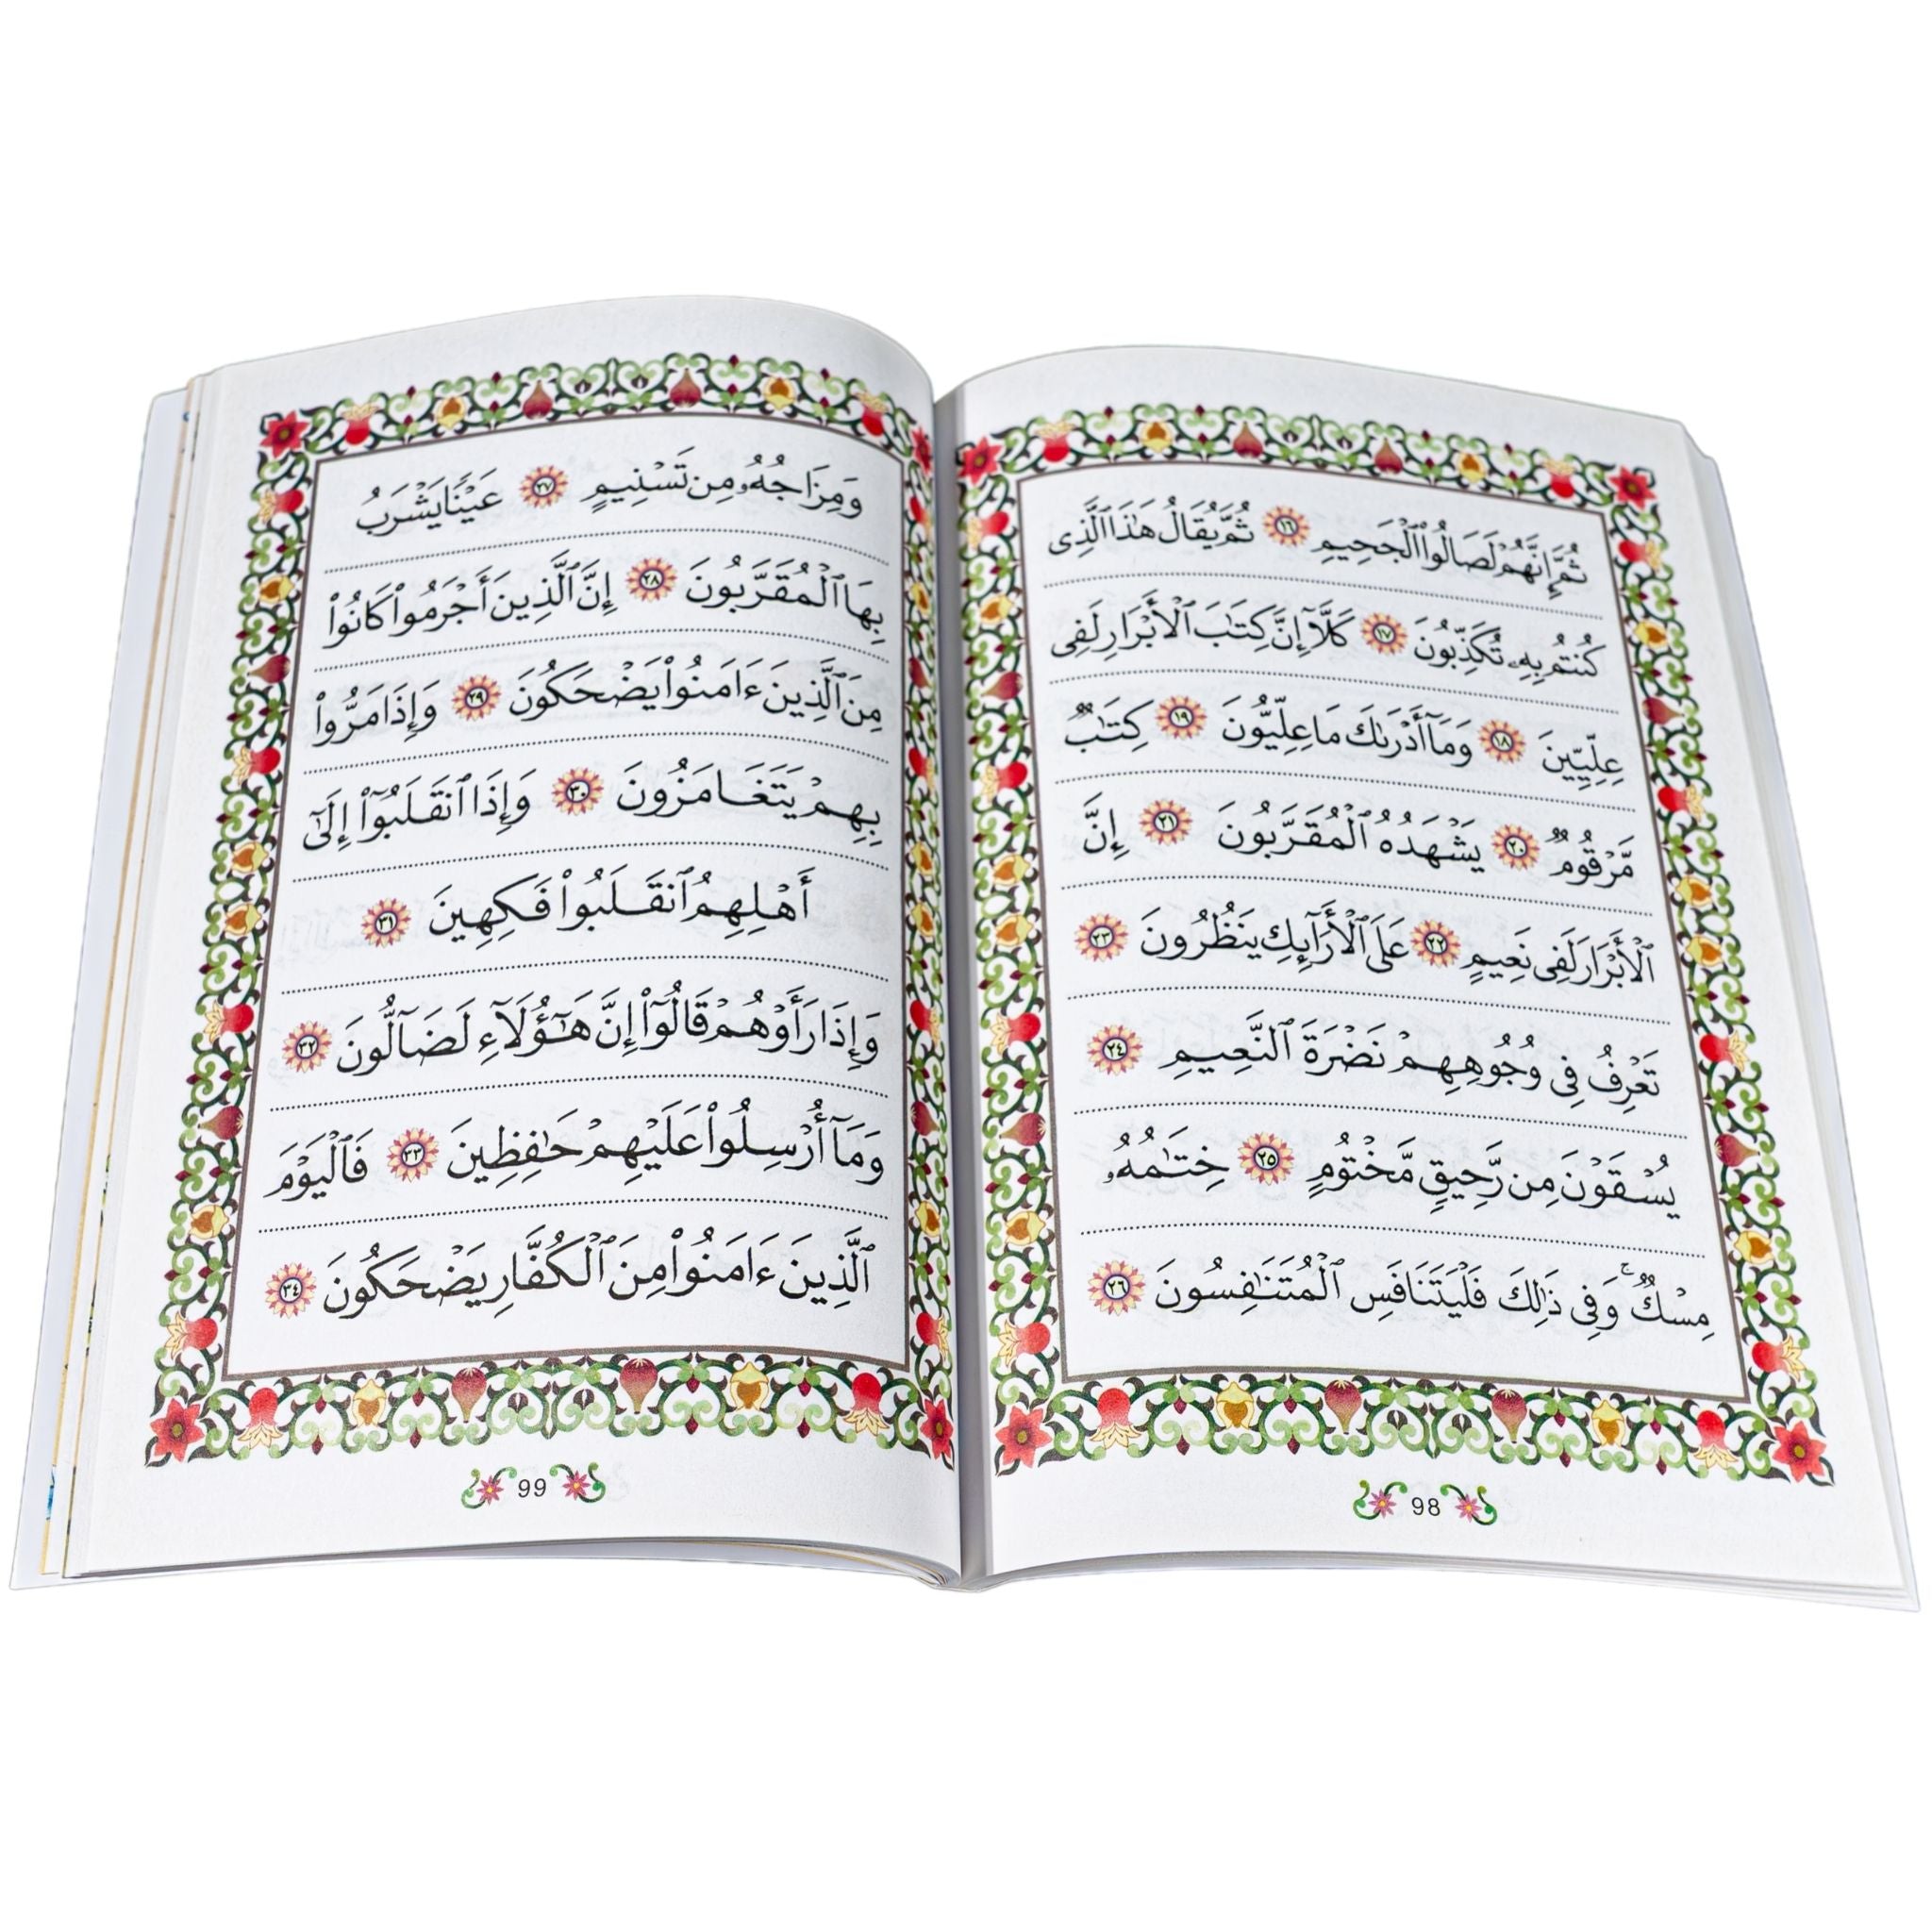 ثُمَّ إِنَّهُمْ لَصَالُوا۟ ٱلْجَحِيمِ ١٦ ثُمَّ يُقَالُ هَٰذَا ٱلَّذِى
كُنتُم بِهِۦ تُكَذِّبُونَ ١٧ كَلَّآ إِنَّ كِتَٰبَ ٱلْأَبْرَارِ لَفِى
عِلِّيِّينَ ١٨ وَمَآ أَدْرَىٰكَ مَا عِلِّيُّونَ ١٩ كِتَٰبٌ
مَّرْقُومٌ ٢٠ يَشْهَدُهُ ٱلْمُقَرَّبُونَ ٢١ إِنَّ
ٱلْأَبْرَارَ لَفِى نَعِيمٍ ٢٢ عَلَى ٱلْأَرَآئِكِ يَنظُرُونَ ٢٣
تَعْرِفُ فِى وُجُوهِهِمْ نَضْرَةَ ٱلنَّعِيمِ ٢٤
يُسْقَوْنَ مِن رَّحِيقٍ مَّخْتُومٍ ٢٥ خِتَٰمُهُۥ
مِسْكٌ ۚ وَفِى ذَٰلِكَ فَلْيَتَنَافَسِ ٱلْمُتَنَٰفِسُونَ ٢٦
98
وَمِزَاجُهُۥ مِن تَسْنِيمٍ ٢٧ عَيْنًا يَشْرَبُ
بِهَا ٱلْمُقَرَّبُونَ ٢٨ إِنَّ ٱلَّذِينَ أَجْرَمُوا۟ كَانُوا۟
مِنَ ٱلَّذِينَ ءَامَنُوا۟ يَضْحَكُونَ ٢٩ وَإِذَا مَرُّوا۟
بِهِمْ يَتَغَامَزُونَ ٣٠ وَإِذَا ٱنقَلَبُوٓا۟ إِلَىٰٓ
أَهْلِهِمُ ٱنقَلَبُوا۟ فَكِهِينَ ٣١
وَإِذَا رَأَوْهُمْ قَالُوٓا۟ إِنَّ هَٰٓؤُلَآءِ لَضَآلُّونَ ٣٢
وَمَآ أُرْسِلُوا۟ عَلَيْهِمْ حَٰفِظِينَ ٣٣ فَٱلْيَوْمَ
ٱلَّذِينَ ءَامَنُوا۟ مِنَ ٱلْكُفَّارِ يَضْحَكُونَ ٣٤
99